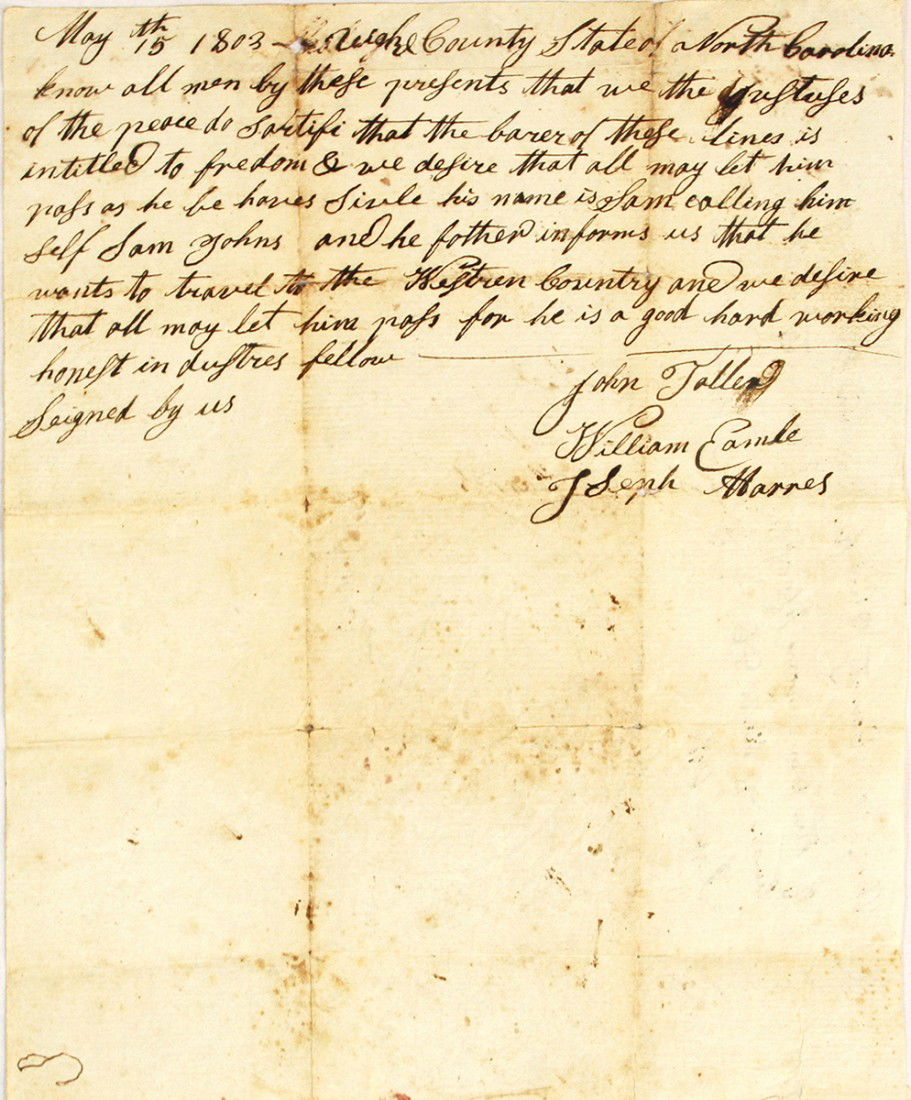 May 15th 1803 County State of North Carolina
know all men by these presents that we the Justuses
of the peace do Sartifi that the barer of these lines is
intitled to fredom & we desire that all may let him
pass as he be haves Sivle his name is Sam calling him
self Sam Johns and he fother informs us that he
wants to travel to the Westren Country and we desire
that all may let him pass for he is a good hard working
honest in dustres fellow
Seigned by us
John Toller
William Camle
Joseph Harres